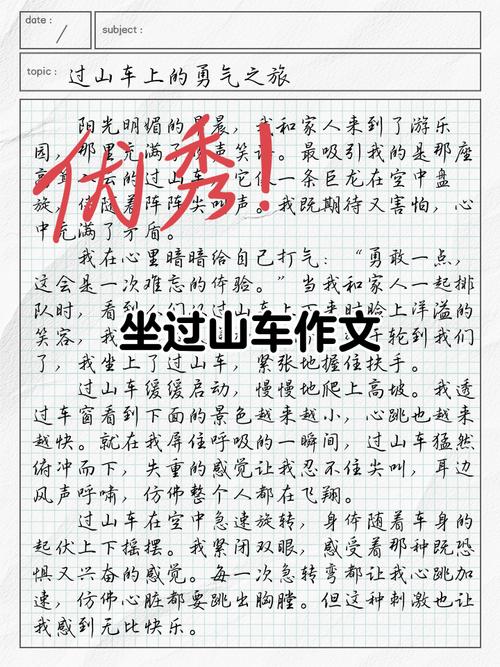 date :
subject :
topic : 过山车上的勇气之旅
阳光明媚的早晨，我和家人来到了游乐
园，那里充满了 声笑语。最吸引我的是那座
云的过山车，它像一条巨龙在空中盘
旋，伴随着阵阵尖叫声。我既期待又害怕，心
中充满了矛盾。
优秀！
我在心里暗暗给自己打气：“勇敢一点，
这会是一次难忘的体验。”当我和家人一起排
队时，看到 们从过山车上下来时脸上洋溢的
坐过山车作文
笑容，我 于轮到我们
了，我坐上了过山车，紧张地握住扶手。
过山车缓缓启动，慢慢地爬上高坡。我透
过车窗看到下面的景色越来越小，心跳也越来
越快。就在我屏住呼吸的一瞬间，过山车猛然
俯冲而下，失重的感觉让我忍不住尖叫，耳边
风声呼啸，仿佛整个人都在飞翔。
过山车在空中急速旋转，身体随着车身的
起伏上下摇摆。我紧闭双眼，感受着那种既恐
惧又兴奋的感觉。每一次急转弯都让我心跳加
速，仿佛心脏都要跳出胸膛。但这种刺激也让
我感到无比快乐。